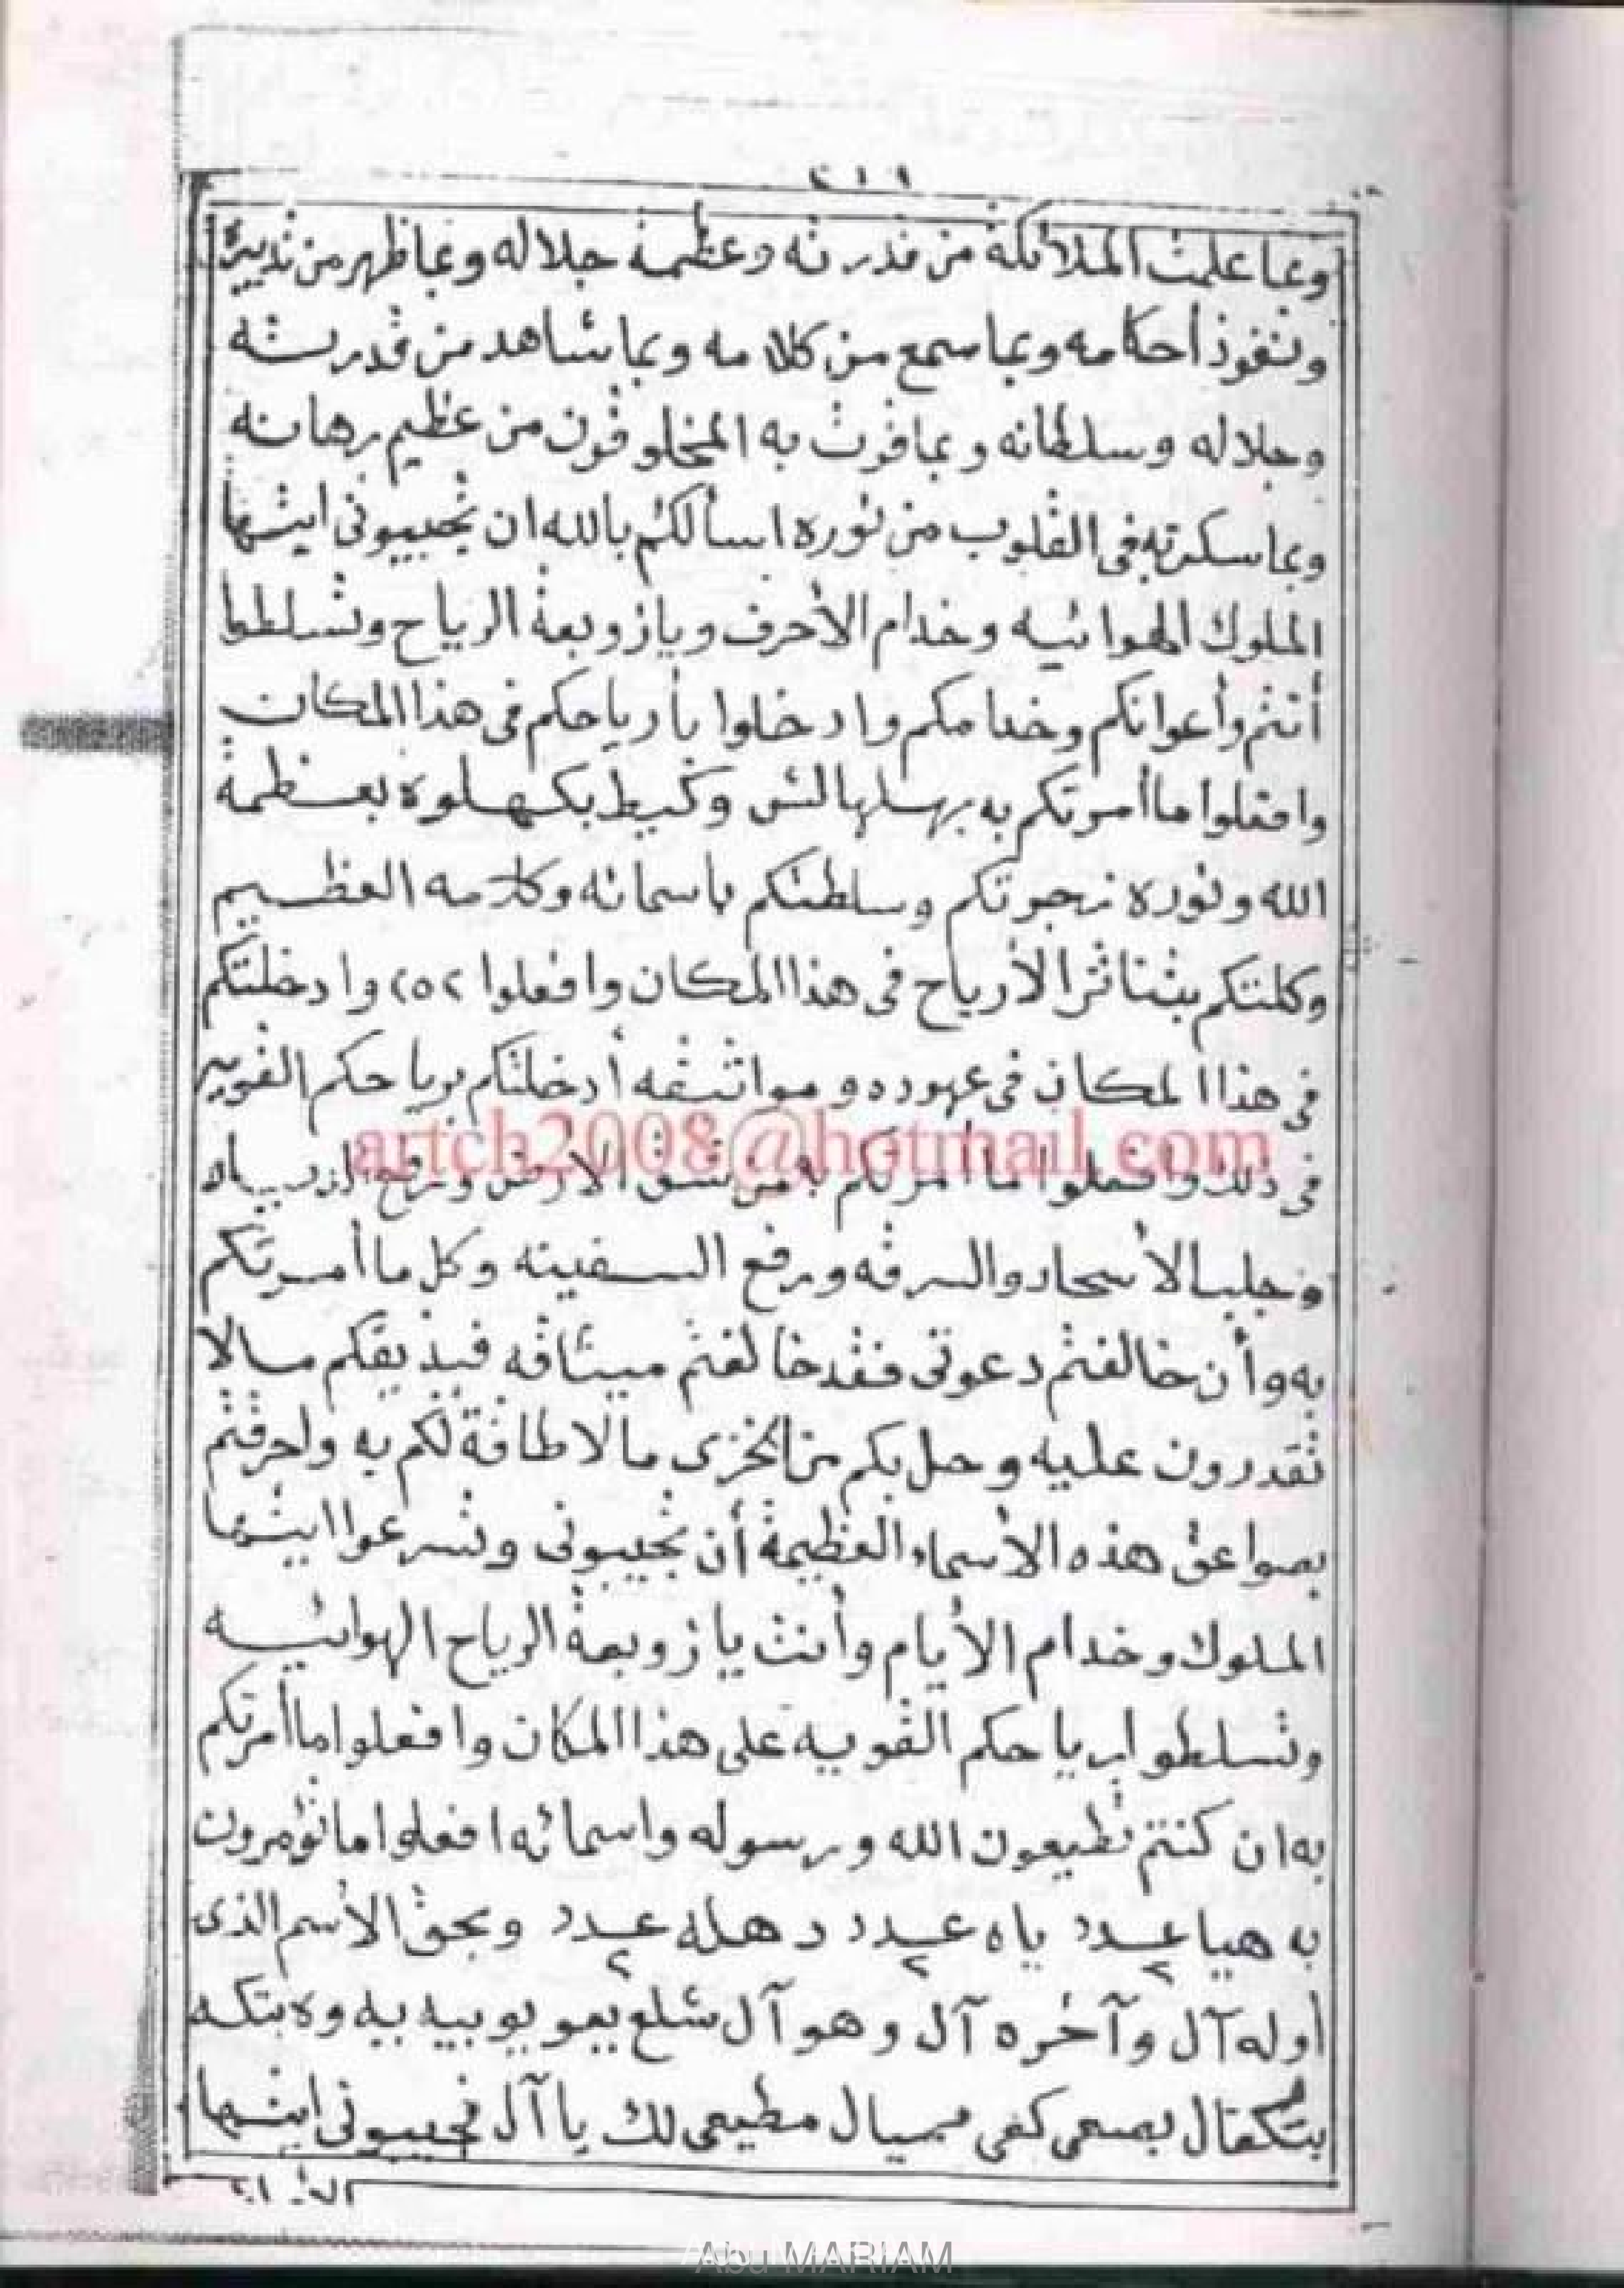 ٢١١
وبما علمت الملائكة من قدرته وعظمة جلاله وبما ظهر من تدبيره
ونفوذ أحكامه وبما سمع من كلامه وبما شاهد من قدرته
وجلاله وسلطانه وبما اقرت به المخلوقون من عظيم برهانه
وبما سكرته فى القلوب من نوره اسألكم بالله ان تجيبونى ايتها
الملوك الهوائيه وخدام الأحرف ويا زوبعة الرياح وتسلطوا
أنتم وأعوانكم وخدامكم وادخلوا بأرياحكم فى هذا المكان
وافعلوا ما أمرتكم به بهسلها لش وكيط بكهلوه بعظمة
الله ونوره زجرتكم وسلطتكم باسمائه وكلامه العظيم
وكلتكم بتناثر الأرياح فى هذا المكان وافعلوا ٢٥٢ وادخلتكم
فى هذا المكان فى عهوده ومواثيقه أدخلتكم برياحكم القويه
فى ذلك وافعلوا ما أمرتكم به من شق الأرض ورفع
artch2008@hotmail.com
وجلب الأسحار والسرقه ورفع السفينه وكل ما أمرتكم
به وأن خالفتم دعوتى فقد خالفتم ميثاقه فيذيقكم مالا
تقدرون عليه وحل بكم من الخزى مالا طاقة لكم به واحرقتم
بصواعق هذه الأسماء العظيمة أن تجيبونى وتسرعوا ايتها
الملوك وخدام الأيام وأنت يا زوبعة الرياح الهوائيه
وتسلطوا برياحكم القويه على هذا المكان وافعلوا ما أمرتكم
به ان كنتم تطيعون الله ورسوله واسمائه افعلوا ما تؤمرون
به هيا عدد ٢ ياه عدد ٢ د هله عدد ٢ وبحق الأسم الذى
أوله آل وآخره آل وهو آل شلع يعو يو بيه بيه وه بتكه
بتكفال بصعى كفى مميال مطيعى لك يا آل تجيبونى ايتها
Abu MARIAM